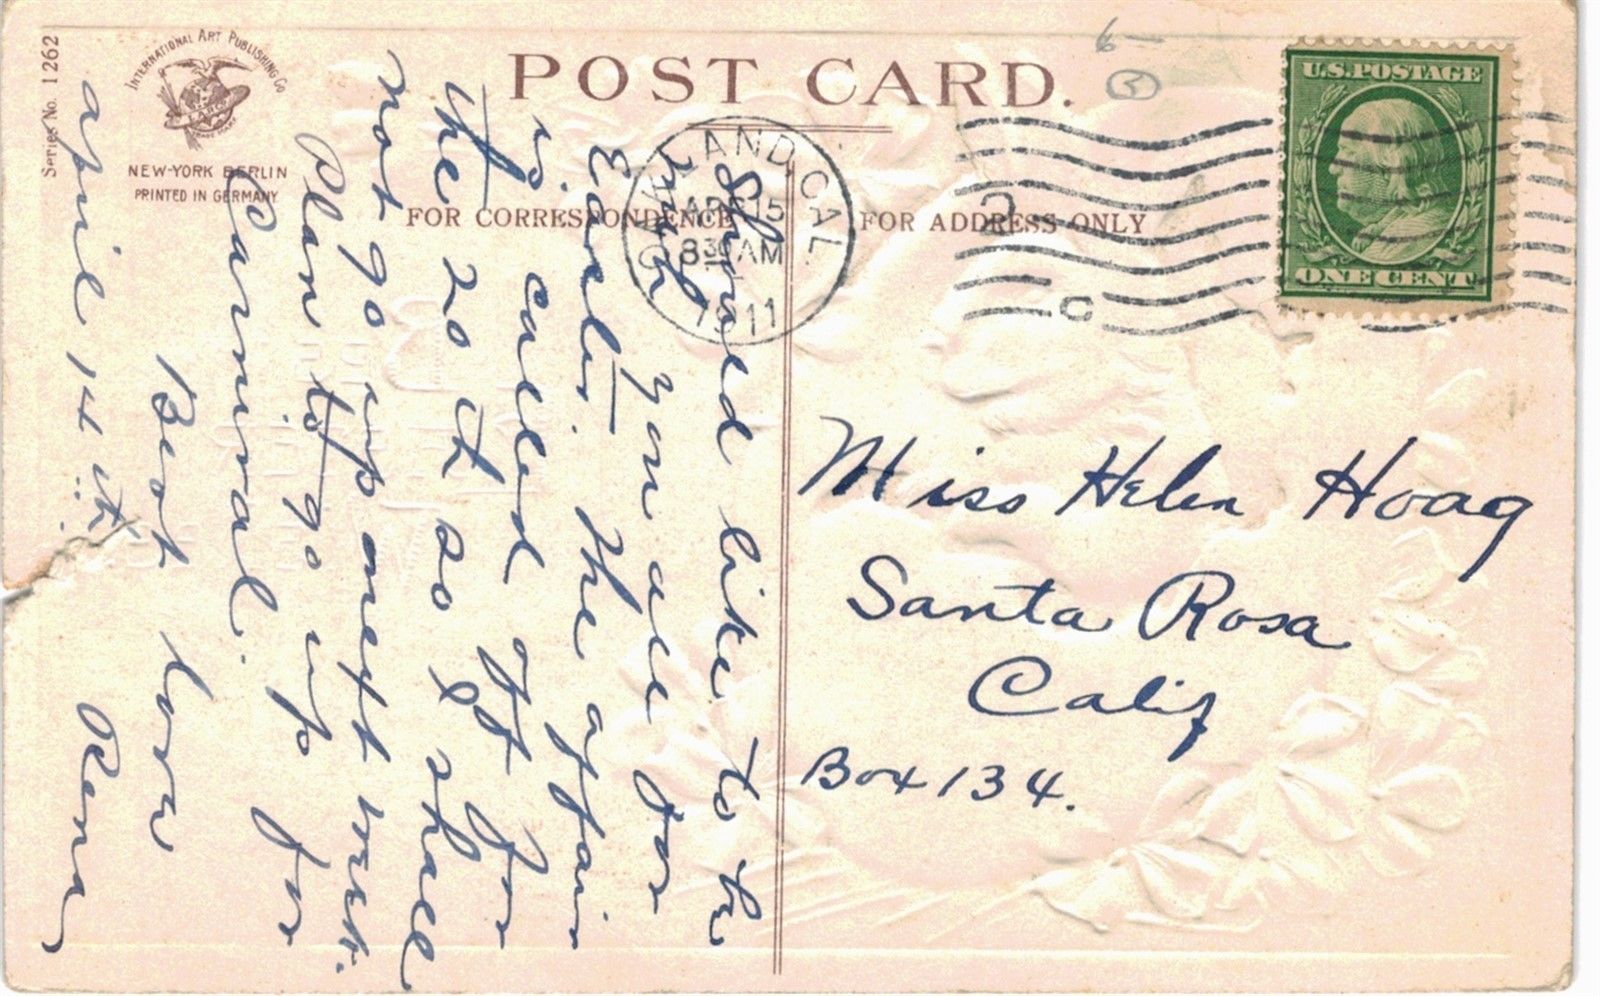 Series No. 1262
INTERNATIONAL ART PUBLISHING Co
NEW-YORK BERLIN
PRINTED IN GERMANY
POST CARD.
FOR CORRESPONDENCE
FOR ADDRESS ONLY
6
3
OAKLAND, CAL.
APR 15
8 30 AM
1911
C
U.S. POSTAGE
ONE CENT
Should like to be
with you all for
Easter. The affair
is called off for
the 20th so I shall
not go up next week.
Plan to go up for
Carnival.
Best love
april 14th. Rena
Miss Helen Hoag
Santa Rosa
Calif
Box 134.